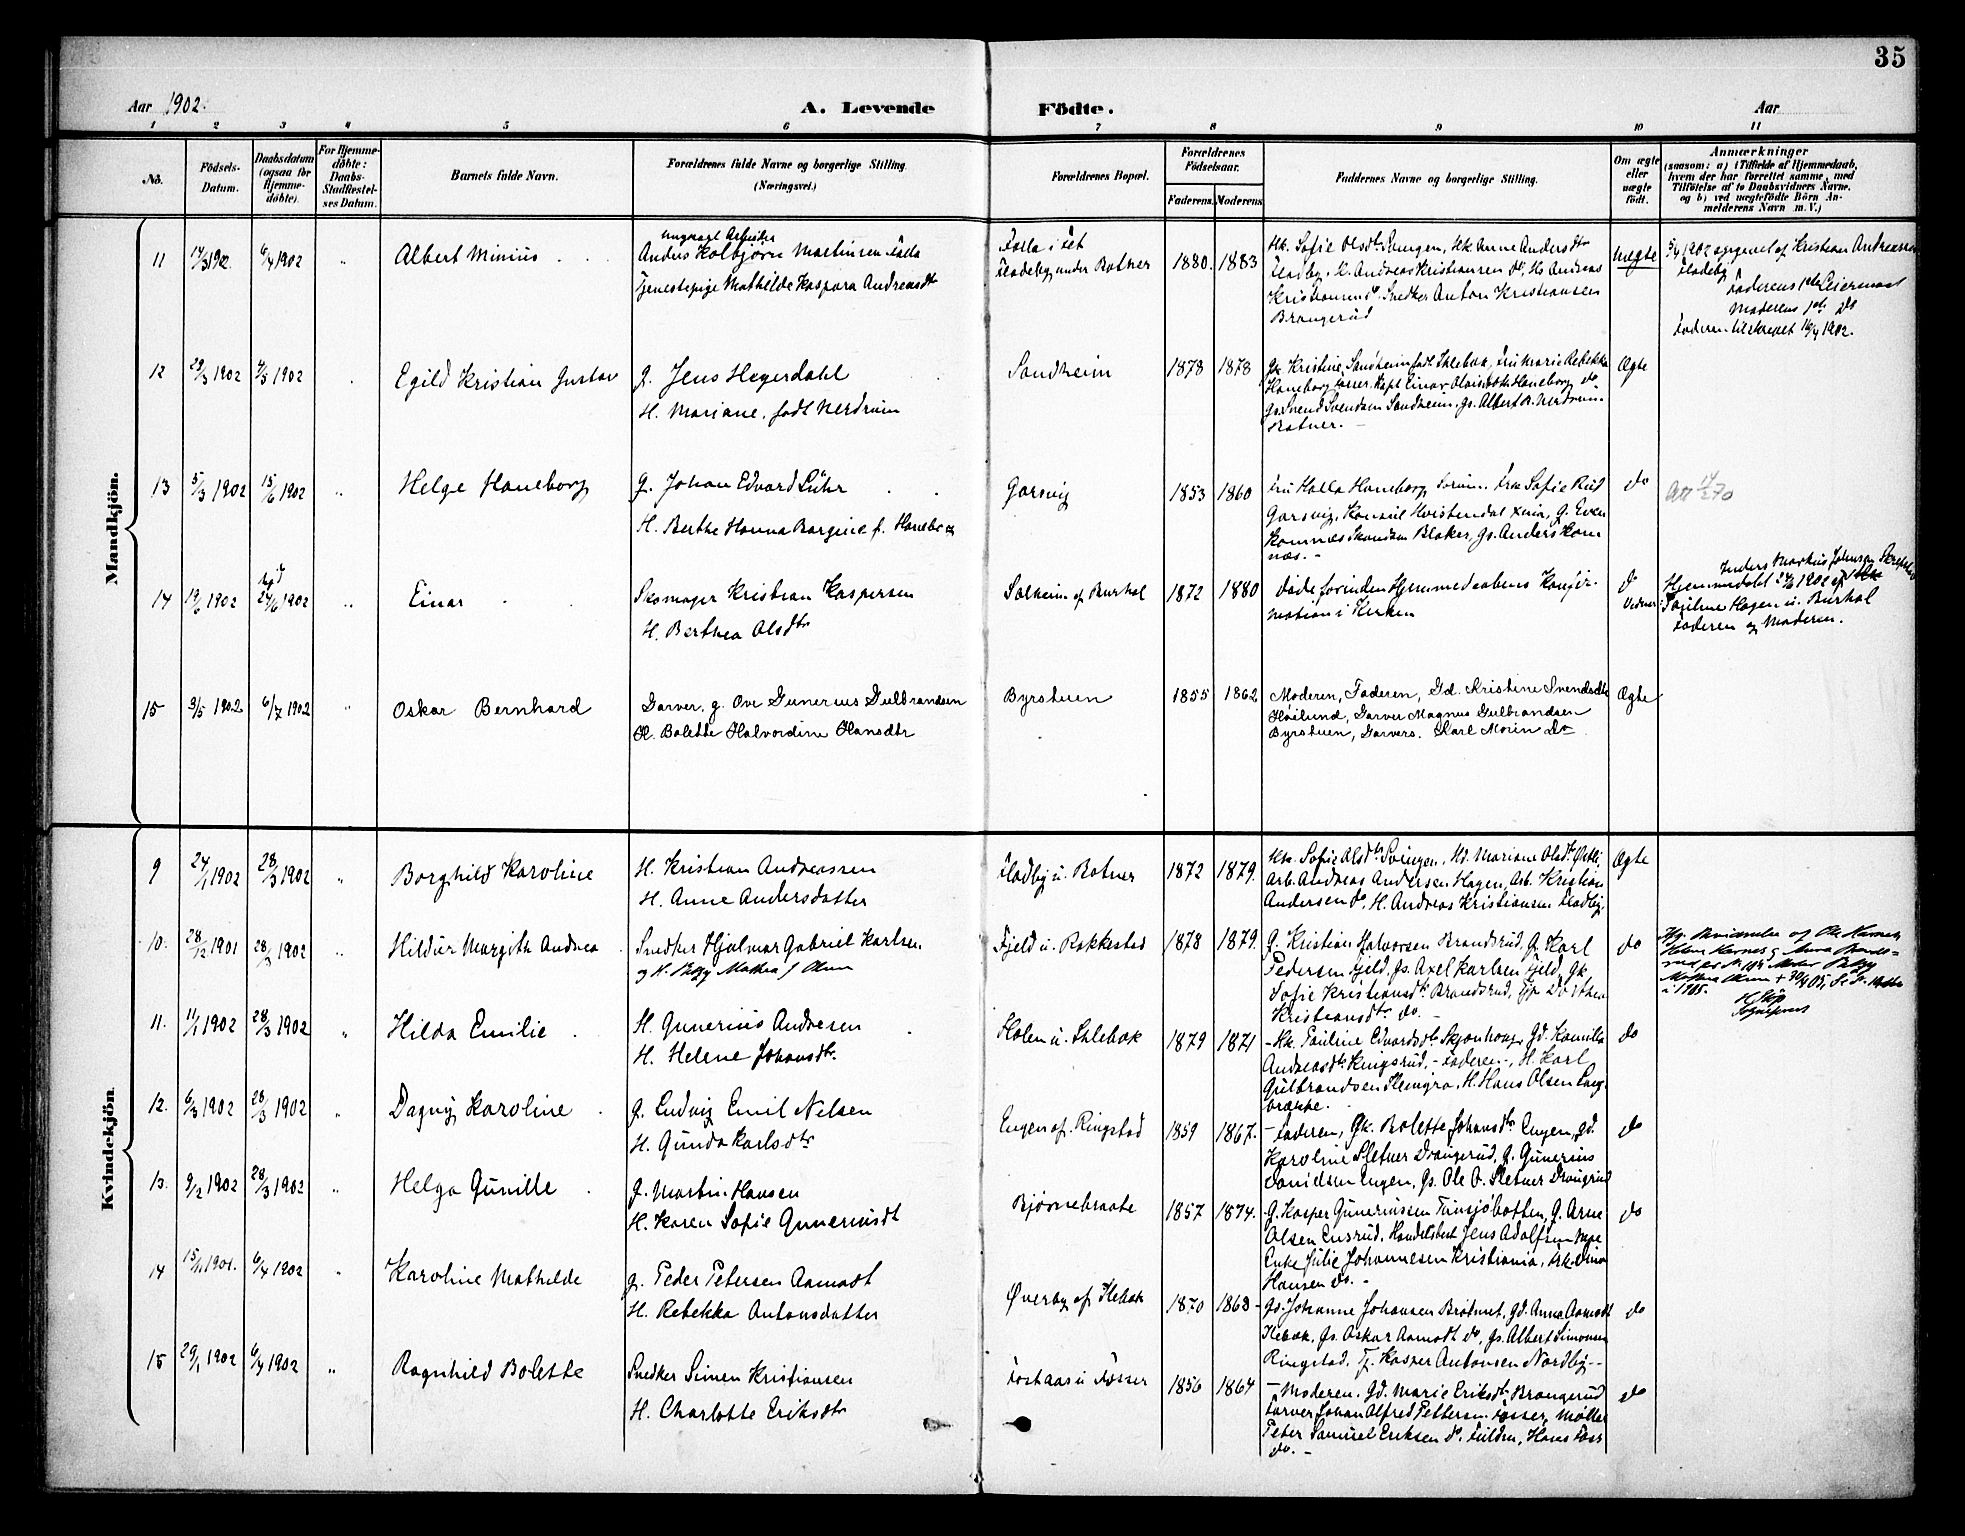 35
Aar 1902.
A. Levende Födte.
Aar
1 2 3 4 5 6 7 8 9 10 11
No.
Födsels-Datum.
Daabsdatum (ogsaa för Hjemme-döbte).
For Hjemme-döbte: Daabs-Stadfæstel-ses Datum.
Barnets fulde Navn.
Forældrenes fulde Navne og borgerlige Stilling. (Næringsvei.)
Forældrenes Bopæl.
Forældrenes Födselsaar.
Faderens. Moderens.
Faddernes Navne og borgerlige Stilling.
Om ægte eller uægte født.
Anmærkninger
(saasom: a) i Tilfælde af Hjemmedaab, hvem der har forrettet samme, med Tilföielse af to Daabsvidners Navne. og b) ved uægtefödte Börn Anmelderens Navn m. V.)
Mandkjön.
11 14/3 1902 6/4 1902 " Albert Minius
ungkarl Arbeider
Anders Kolbjørn Martinsen Fosta
Tjenestepige Mathilde Kaspara Andreasdt
Fosta i Fet
Fladeby under Botner
1880. 1883
Kk. Sofie Olsdtr Svingen, Kk Anne Andersdtr
Fladby, K. Andreas Kristiansen do, H. Andreas
Kristiansen do. Snedker Anton Kristiansen
Brangerud
Uægte
5/4 1902 opgivet af Kristian Andreassen
Fladeby
Faderens 1ste Leiermaal
Moderens 1ste do
Faderen tilskrevet 16/4 1902.
12 29/3 1902 4/5 1902 Egild Kristian Gustav
G. Jens Heyerdahl
H. Mariane, født Nerdrum
Sandheim
1878 1878
Gk. Kristine Sandheim født Ihlebæk, Fru Marie Rebekka
Haneborg Fosser. Kapt Einar Haneborg do
Gs. Svend Svendsen Sandheim, Gs. Albert Nerdrum
Botner. -
Ægte
13 5/3 1902 15/6 1902 " Helge Haneborg
G. Johan Edvard Lühr
H. Berthe Hanna Bargine f. Haneborg
Garsvig
1853 1860
Fru Halla Haneborg Sørum. Frk Sofie Rud
Garsvig, Konsul Hvistendal Xnia, G. Even
Komnæs Skandsen Blaker, Gs. Anders Kom
næs. -
do
14 19/6 1902 24/6 1902 " Einar
Skomager Kristian Kaspersen
H. Berthea Olsdtr
Solheim af Burhol
1872 1880
Døde forinden Hjemmedaabens Konfir-
mation i Kirken
do
Vidner:
Hjemmedøbt 24/6 1902 af
Pauline Hagen u. Burhol
Faderen og Moderen.
15 3/5 1902 6/7 1902 " Oskar Bernhard
Garver. g. Ove Gunerius Gulbrandsen
H. Bolette Halvordine Hansdtr
Byrstuen
1855 1862
Moderen, Faderen, Gd. Kristine Svendsdtr
Høilund, Garver Magnus Gulbrandsen
Byrstuen, Garvers. Karl Morin Do
Ægte
Kvindekjön
9 24/1 1902 28/3 1902 " Borghild Karoline
H. Kristian Andreassen
H. Anne Andersdatter
Fladby u. Botner
1872 1879.
Kk. Sofie Olsdtr Svingen, Hd. Mariane Olsdtr
Arb. Andreas Andersen Hagen, Arb. Kristian
Andersen do, H. Andreas Kristiansen Fladby.
Ægte
10. 28/12 1901 28/3 1902 " Hildur Margith Andrea
Snedker Hjalmar Gabriel Karlsen
og H. Betzy Mathea f Olsen
Fjeld u. Rakkestad
1878 1879.
G. Kristian Halvorsen Brandsrud, G. Karl
Pedersen Fjeld, Gs. Axel Karlsen Fjeld, Gk.
Sofie Kristiansdtr Brandsrud, Tjp Dorthea
Kristiansdtr do. -
do
11. 11/1 1902 28/3 1902 " Hilda Emilie
H. Gunerius Andresen
H. Helene Johansdtr
Holen u. Ihlebæk
1879 1871
- Kk. Pauline Edvardsdtr Skjønhaug, Gd. Kamilla
Andreasdtr Kingsrud, - Faderen -, H. Karl
Gulbrandsen Hemgra, H. Hans Olsen Lang
brække. -
do
12. 6/3 1902 28/3 1902 " Dagny Karoline
G. Ludvig Emil Nelsen
H. Gunda Karlsdtr
Engen af Ringstad
1859 1867.
- Faderen, Gk. Bolette Johansdtr Engen, gd.
Karoline Sletner Drangerud, G. Gunerius
Danielsen Engen, Gs. Ole O. Sletner Drangrud
do
13. 9/2 1902 28/3 1902 " Helga Gunille
G. Martin Hansen
H. Karen Sofie Gunneriusdt
Bjørnebraate
1857 1874.
G. Kasper Guneriussen Tunsjøbotten, G. Arne
Olsen Ensrud, Handelsbet Jens Adolfsen
Enke Julie Johannesen Kristiania,
Hansen do. -
do
14 15/11 1901. 6/4 1902 " Karoline Mathilde
G. Peder Petersen Aamodt
H. Rebekka Antonsdatter
Øverby af Ilebæk
1870 1863 -
Gs. Johanne Johansen Brøtmet, Gd. Anna Aamodt
Ilebæk, Gs. Oskar Aamodt do, Gs. Albert Simonsen
Ringstad, Tj. Kasper Antonsen Nordby -
do
15 29/1 1902 6/4 1902 " Ragnhild Bolette
Snedker Simen Kristiansen
H. Charlotte Eriksdtr
Fostaas u Fosser
1856 1864
- Moderen. Gd. Marie Eriksdtr Brangerud
Farver Johan Alfred Pettersen Fosser, Møller
Peter Samuel Eriksen do. Fulden, Hans Foss
do. -
do